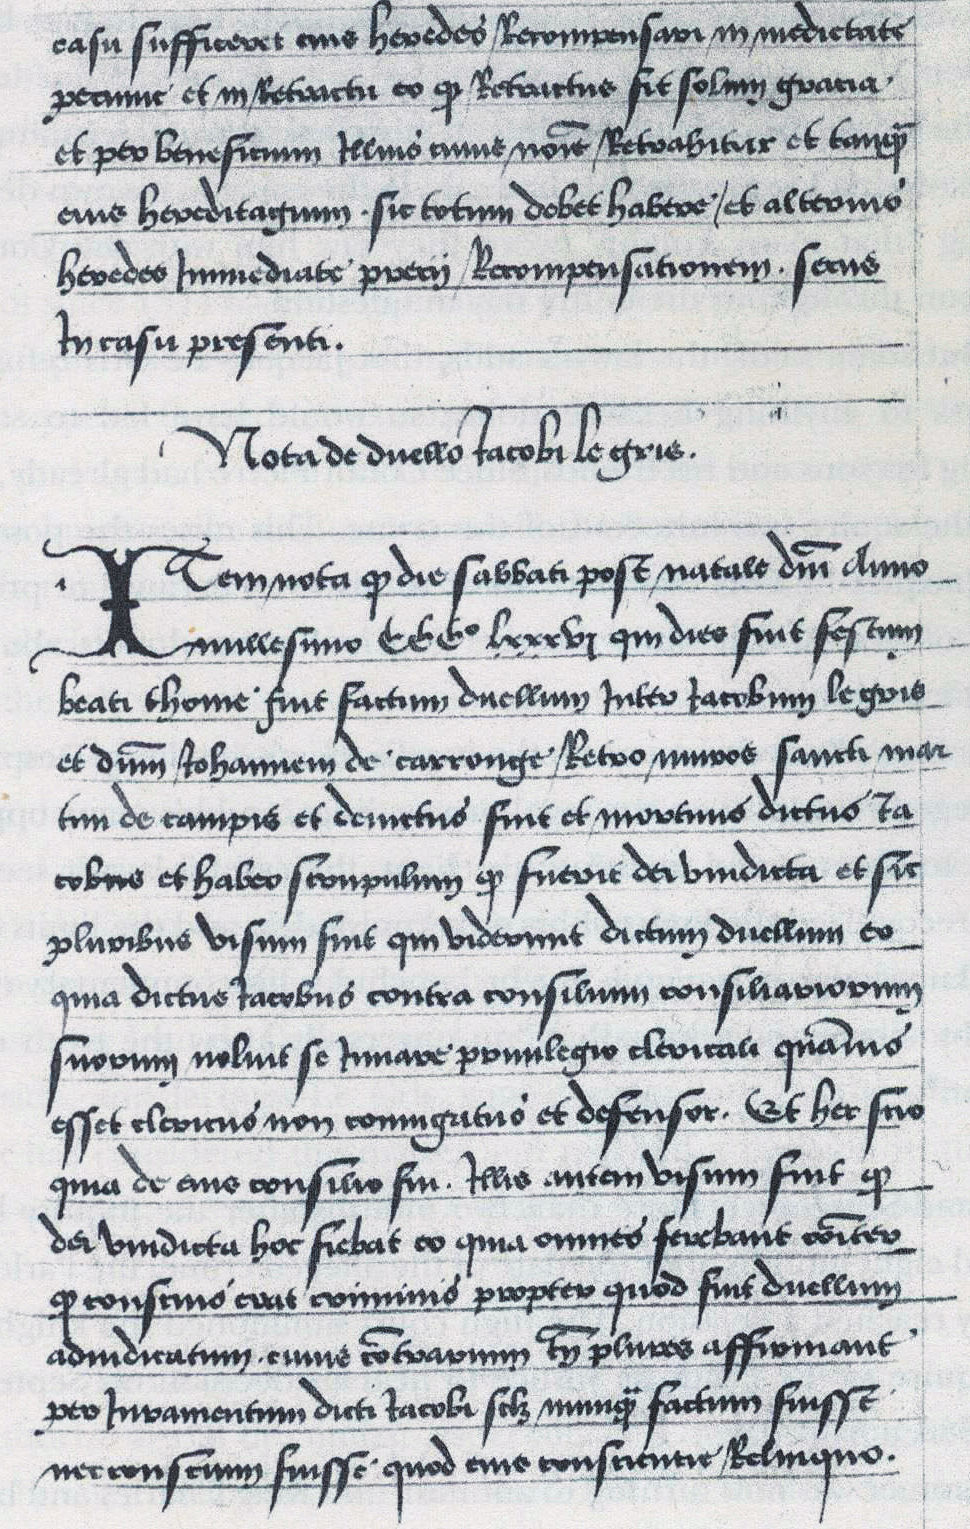 casu sufficeret eius heredes Recompensari in medietate
pecunie et in Retractu eo q̄ Retractus sit solum gracia
et per beneficium Illius cuius noīe Retrahitur et tanq̄
eius hereditagium . sic totum debet habere / et alterius
heredes Immediate precij Recompensationem . secus
In casu presenti .
Nota de duello Jacobi le gris .
ITem nota q̄ die sabbati post natale dnī Anno
millesimo CCCo lxxxvj qui dies fuit festum
beati thome fuit factum duellum Inter Jacobum le gris
et dnm̄ Johannem de carronge Retro muros sancti mar
tini de campis et deuictus fuit et mortuus dictus Ja
cobus et habeo scrupulum q̄ fuerit dei vindicta et sic
pluribus visum fuit qui viderunt dictum duellum eo
quia dictus Jacobus contra consilium consiliariorum
suorum noluit se Iuuare priuilegio clericali quāuis
esset clericus non coniugatus et defensor . Et hec scio
quia de eius consilio fui . Illis autem visum fuit q̄
dei vindicta hoc fiebat eo quia omnes ferebant cōiter
q̄ conscius erat criminis propter quod fuit duellum
adiudicatum . cuius cōtrarium tn̄ plures affirmant
per Iuramentum dicti Jacobi scilz nunq̄ factum fuisse
nec conscium fuisse quod eius conscientie Relinquo .